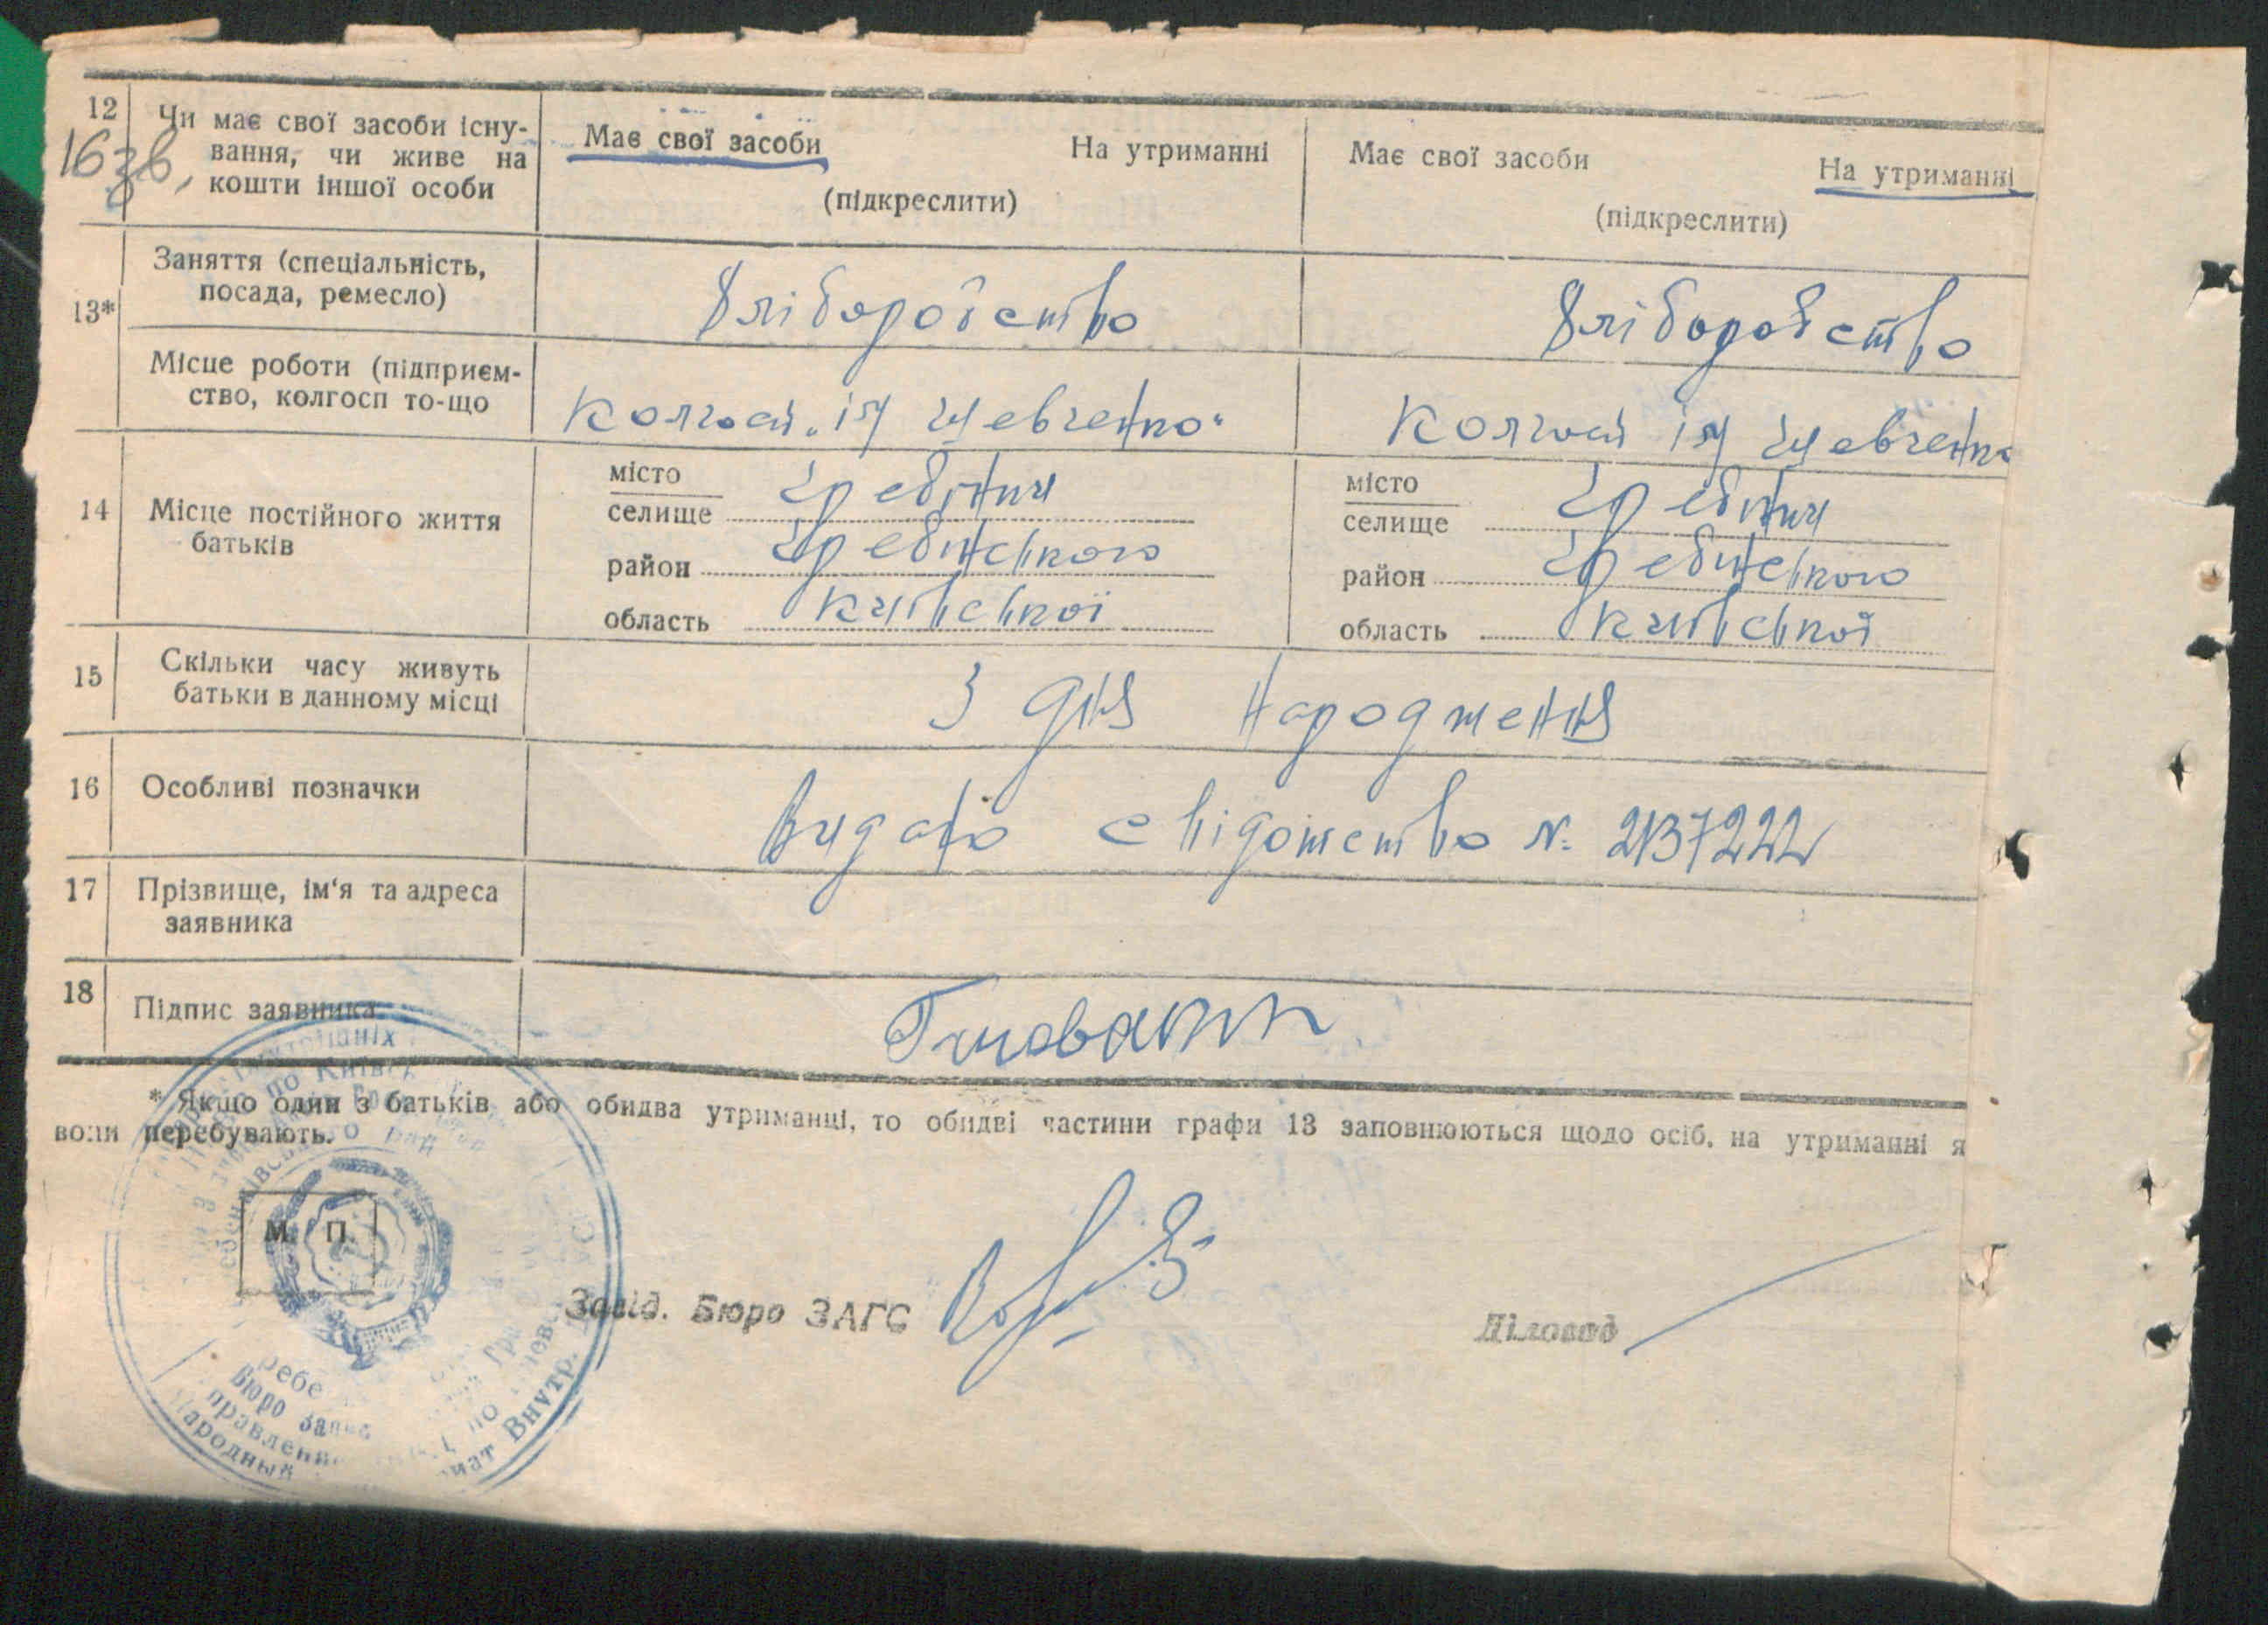 12 Чи має свої засоби існу-
вання, чи живе на
кошти іншої особи
163в,
Має свої засоби На утриманні
(підкреслити)
Має свої засоби На утриманні
(підкреслити)
13* Заняття (спеціальність,
посада, ремесло)
Хліборобство Хліборобство
Місце роботи (підприєм-
ство, колгосп то-що
Колгосп „ім Шевченко" Колгосп ім Шевченко
14 Місце постійного життя
батьків
місто
селище Гребінки
район Гребінського
область Київської
місто
селище Гребінки
район Гребінського
область Київської
15 Скільки часу живуть
батьки в данному місці
З дня народження
16 Особливі позначки
Видано свідотство №: 2137222
17 Прізвище, ім'я та адреса
заявника
18 Підпис заявника
* Якщо один з батьків або обидва утриманці, то обидві частини графи 13 заповнюються щодо осіб, на утриманні я
вони перебувають.
М. П.
Завід. Бюро ЗАГС
Діловод
по Київс
Бюро
Народный
Внутр.